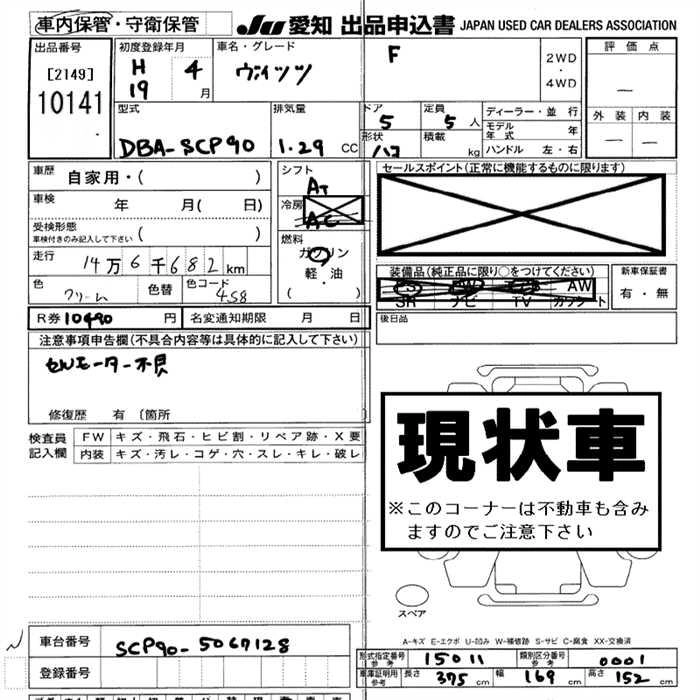 車内保管・守衛保管 JU 愛知 出品申込書 JAPAN USED CAR DEALERS ASSOCIATION
出品番号 初度登録年月 車名・グレード 評価点
[2149] H 19 4 月 ヴィッツ F 2WD・4WD —
10141 型式 排気量 ドア 定員 ディーラー・並行 外装 内装
DBA-SCP90 1.29 CC 5 5 人 モデル年式 年 — —
形状 ハコ 積載 kg ハンドル 左・右
車歴 自家用・( ) シフト AT セールスポイント(正常に機能するものに限ります)
車検 年 月( 日) 冷房 AC
受検形態 車検付きのみ記入して下さい ( ) 燃料 ガソリン
走行 14万6千682km 軽・油 装備品(純正品に限り○をつけてください) 新車保証書
色 クリーム 色替 色コード 458 ( ) PS PW AW 有・無
SR ナビ TV カワシート
R券 10490 円 名変通知期限 月 日 後日品
注意事項申告欄(不具合内容等は具体的に記入して下さい)
セルモーター不良
修復歴 有 〔箇所
検査員記入欄 FW キズ・飛石・ヒビ割・リペア跡・X要
内装 キズ・汚レ・コゲ・穴・スレ・キレ・破レ
現状車
※このコーナーは不動車も含み
ますのでご注意下さい
スペア
A-キズ E-エクボ U-凹み W-補修跡 S-サビ C-腐食 XX-交換済
車台番号 SCP90-5067128
形式指定番号 参考 15011 類別区分番号 参考 0001
登録番号 車庫証明用 参考 長さ 375 cm 幅 169 cm 高さ 152 cm